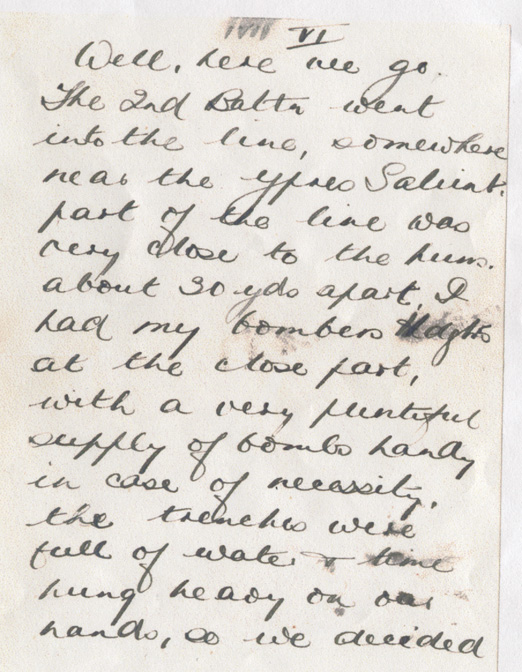 VI
Well, here we go.
The 2nd Battn went
into the line, somewhere
near the Ypres Salient.
part of the line was
very close to the huns.
about 30 yds apart, I
had my bombers
at the close part,
with a very plentiful
supply of bombs handy
in case of necessity.
the trenches were
full of water & time
hung heavy on our
hands, so we decided